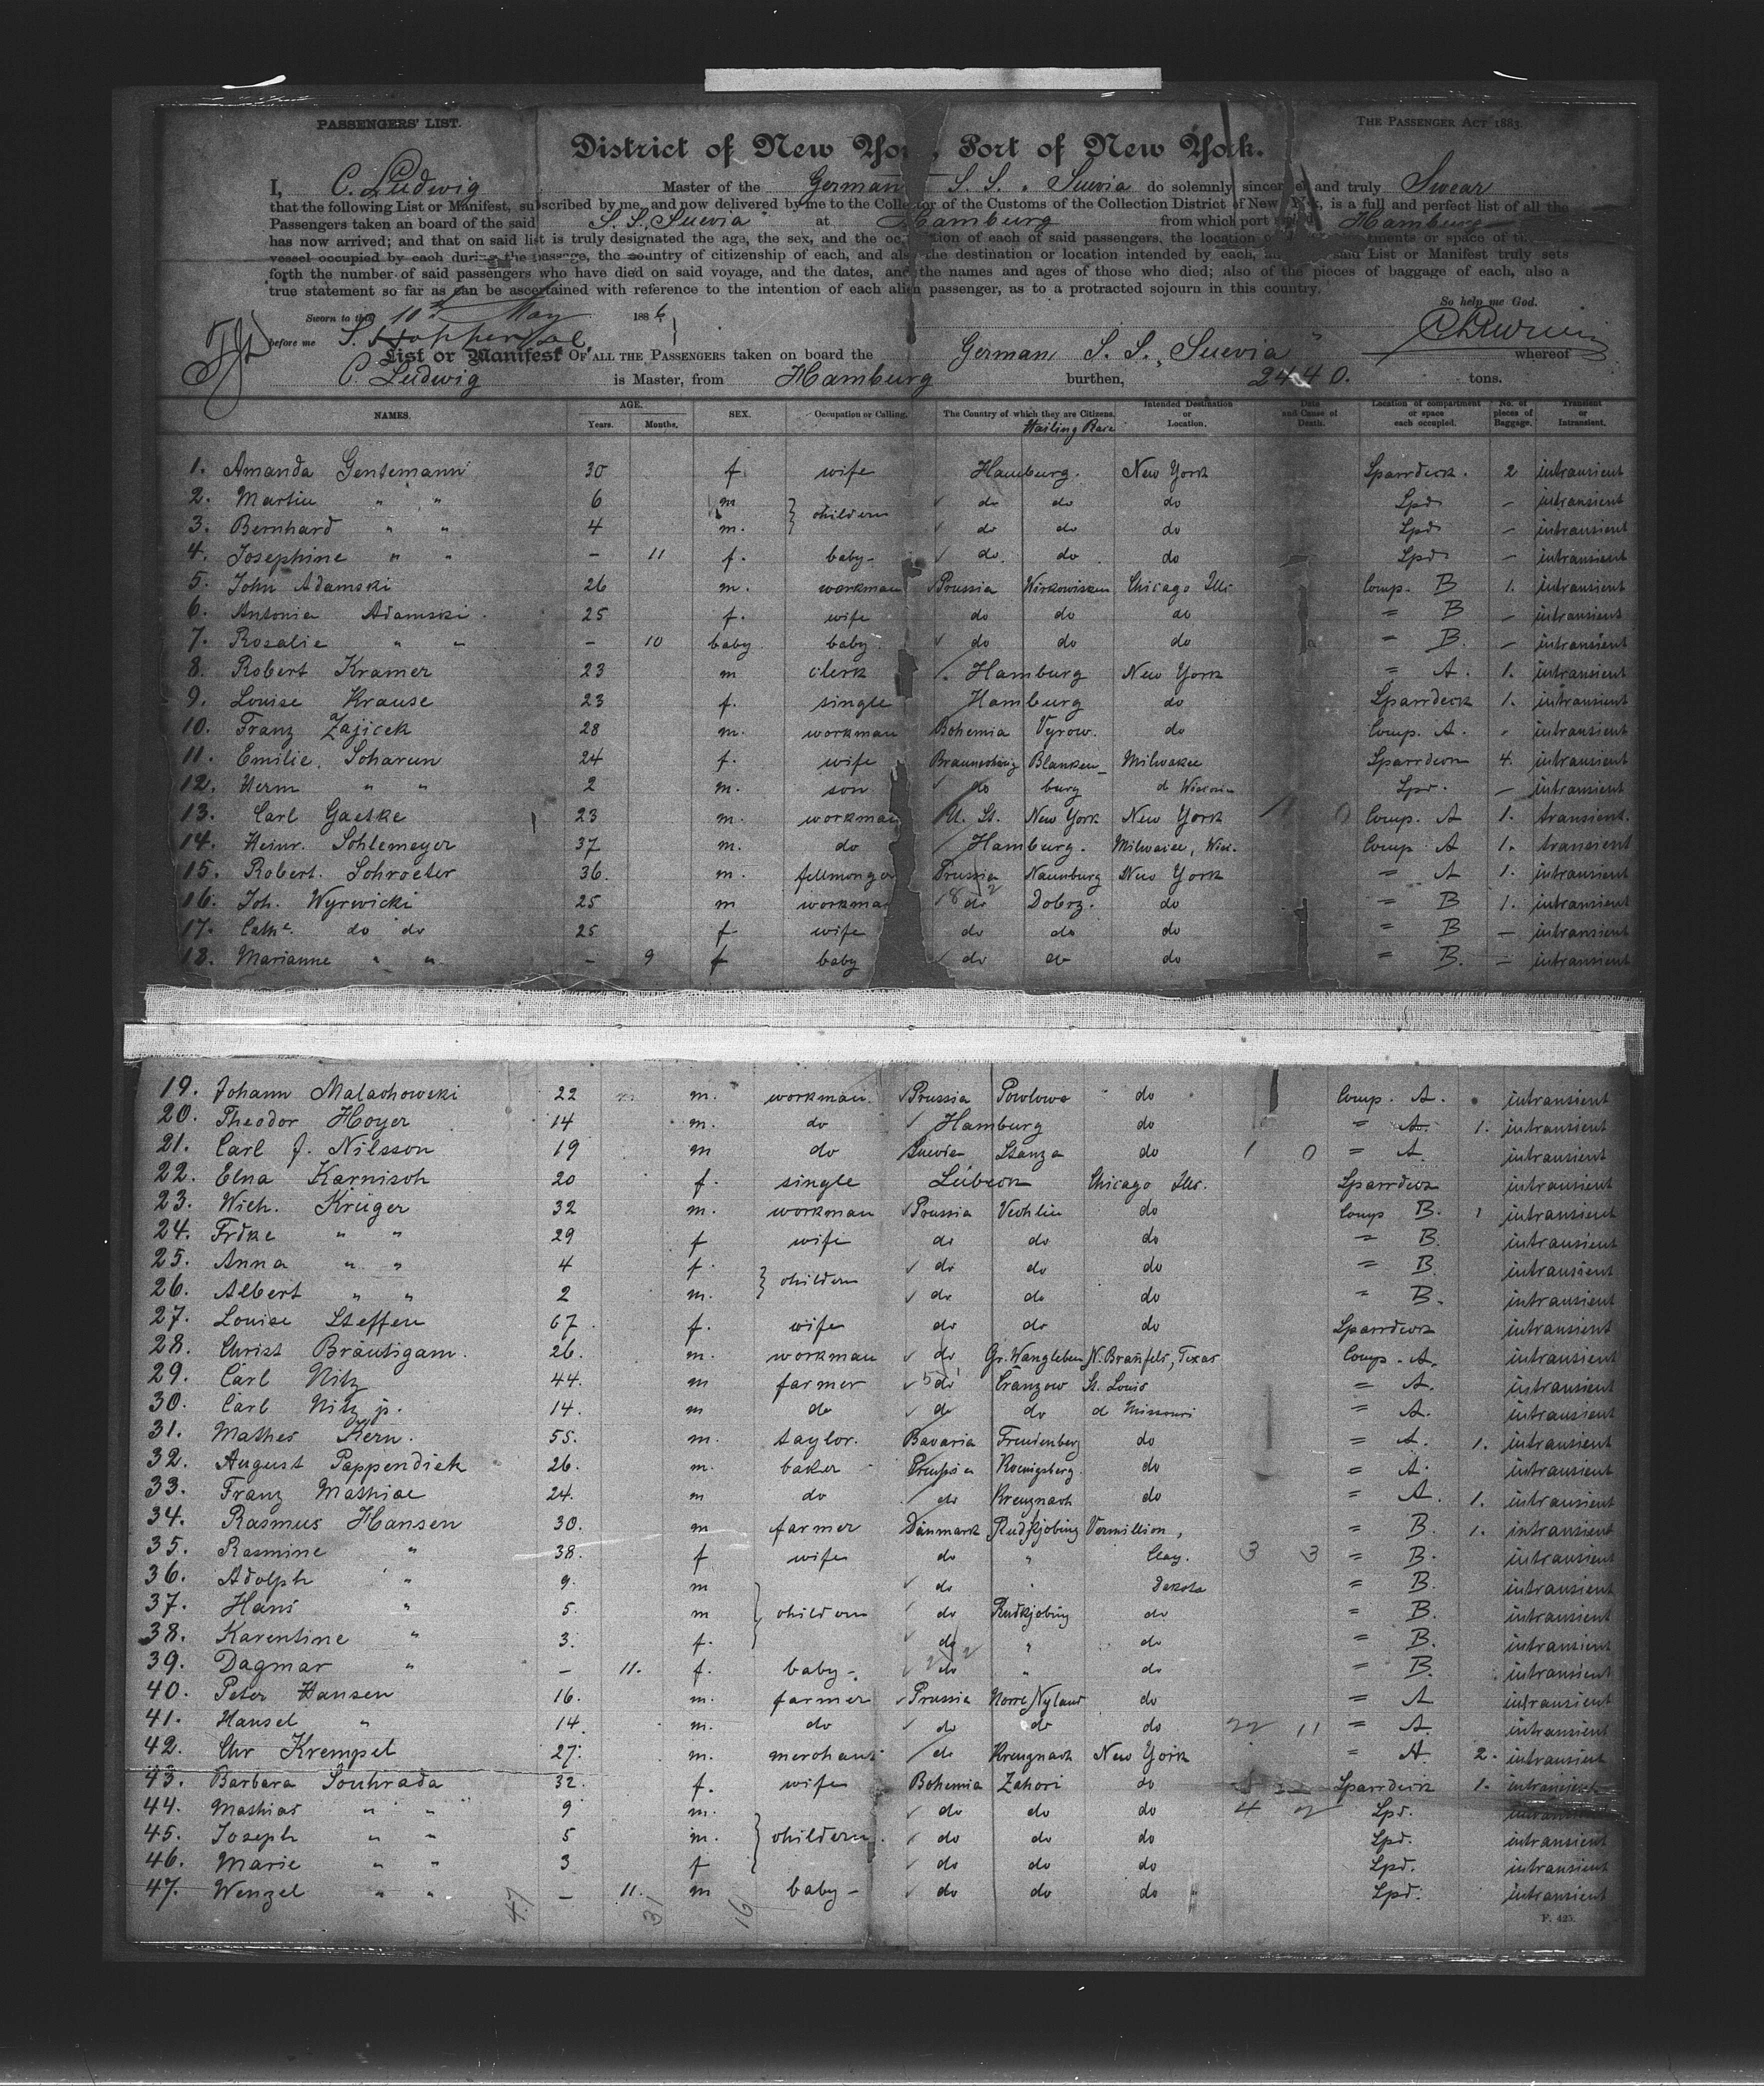 PASSENGERS' LIST.
THE PASSENGER ACT 1883.
District of New York, Port of New York.
I, C. Ludwig Master of the German S. S. Suevia do solemnly sincerely and truly Swear
that the following List or Manifest, subscribed by me, and now delivered by me to the Collector of the Customs of the Collection District of New York, is a full and perfect list of all the
Passengers taken an board of the said S. S. Suevia at Hamburg from which port Hamburg
has now arrived; and that on said list is truly designated the age, the sex, and the occupation of each of said passengers, the location of compartments or space of the
vessel occupied by each during the passage, the country of citizenship of each, and also the destination or location intended by each, and said List or Manifest truly sets
forth the number of said passengers who have died on said voyage, and the dates, and the names and ages of those who died; also of the pieces of baggage of each, also a
true statement so far as can be ascertained with reference to the intention of each alien passenger, as to a protracted sojourn in this country.
So help me God.
Sworn to this 10th May 1886
before me
List or Manifest OF ALL THE PASSENGERS taken on board the German S. S. Suevia whereof
C. Ludwig is Master, from Hamburg burthen, 2440. tons.
NAMES. AGE. Years. Months. SEX. Occupation or Calling. The Country of which they are Citizens. Intended Destination or Location. Date and Cause of Death. Location of compartment or space each occupied. No. of pieces of Baggage. Transient or Intransient.
1. Amanda Gentemann 30 f. wife Hamburg. New York Sparrdeck. 2 intransient
2. Martin " " 6 m } children do do do Spd - intransient
3. Bernhard " " 4 m. do do do Spd - intransient
4. Josephine " " - 11 f. baby- do do do Spd - intransient
5. John Adamski 26 m. workman Prussia Chicago Ills Comp. B 1. intransient
6. Antonia Adamski 25 f. wife do do do = B - intransient
7. Rosalie " " - 10 baby baby do do do = B. - intransient
8. Robert Kramer 23 m clerk Hamburg New York = A. 1. intransient
9. Louise Krause 23 f. single Hamburg do Sparrdeck 1. intransient
10. Franz Zajicek 28 m. workman Bohemia Vyrow. do Comp. A. intransient
11. Emilie Scharun 24 f. wife Braunschwig Blanken- Milwakee Sparrdeck 4. intransient
12. Herm " " 2 m. son do burg d Wisconsin Spd. - intransient
13. Carl Gaetke 23 m. workman U. St. New York New York Comp. A 1. transient.
14. Heinr. Schlemeyer 37 m. do Hamburg. Milwaukee, Wisc. Comp. A 1. transient
15. Robert. Schroeter 36. m. fellmonger Prussia Naumburg New York = A 1. intransient
16. Joh. Wyrwicki 25 m workman do Dobrz. do = B 1. intransient
17. Cathe. do do 25 f wife do do do = B - intransient
18. Marianne " " - 9 f baby do do do = B. - intransient
19. Johann Malachowski 22 m. workman. Prussia Powlowo do Comp. A. intransient
20. Theodor Hoyer 14 m. do Hamburg do = A. 1. intransient
21. Carl J. Nilsson 19 m do Stanza do 1 0 = A. intransient
22. Elna Karnisch 20 f. single Lübeck Chicago Ills. Sparrdeck intransient
23. Wich. Krüger 32 m. workman Prussia Vechlin do Comp B. 1 intransient
24. Frdke " " 29 f wife do do do = B. intransient
25. Anna " " 4 f. } children do do do = B intransient
26. Albert " " 2 m. do do do " B. intransient
27. Louise Steffen 67. f. wife do do do Sparrdeck intransient
28. Christ Bräutigam. 26. m. workman do Gr. Wangleben N. Braunfels, Texas Comp. A. intransient
29. Carl Nitz 44. m farmer do Cranzow St. Louis = A. intransient
30. Carl Nitz jr. 14. m do do do d Missouri = A. intransient
31. Mathes Kern. 55. m. taylor. Bavaria Freudenberg do = A. 1. intransient
32. August Pappendick 26. m. baker Preussia Koenigsberg. do = A. intransient
33. Franz Mathiae 24. m do do Kreuznach do = A. 1. intransient
34. Rasmus Hansen 30. m farmer Dänmark Rudkjobing Vermillion, = B. 1. intransient
35. Rasmine " 38. f wife do " Clay. 3 3 = B. intransient
36. Adolph " 9. m } children do " Dakota = B. intransient
37. Hans " 5. m do Rudkjobing do = B. intransient
38. Karentine " 3. f. do " do = B. intransient
39. Dagmar " - 11. f. baby-. do " do = B. intransient
40. Peter Hansen 16. m. farmer Prussia Norre Nyland do = A intransient
41. Hansel " 14. m. do do do do 11 = A. intransient
42. Chr Krempel 27. m. merchant do Kreuznach New York = A 2. intransient
43. Barbara Souhrada 32. f. wife Bohemia Zahori do Sparrdeck 1. intransient
44. Mathias " " 9 m. } children. do do do 4 Spd. intransient
45. Joseph " " 5 m. do do do Spd. intransient
46. Marie " " 3 f do do do Spd. intransient
47. Wenzel " " - 11. m baby- do do do " Spd. intransient
47 31 16
F. 425.